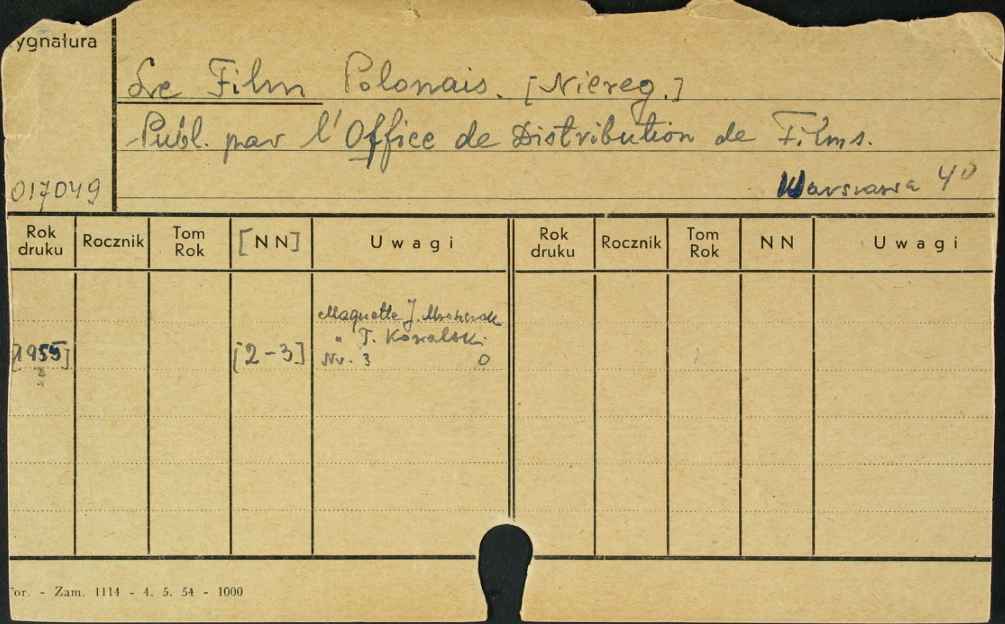 ygnatura
Le Film Polonais. [Niereg.]
Publ. par l'Office de Distribution de Films.
017049
Warszawa 4°
Rok druku Rocznik Tom Rok [NN] Uwagi Rok druku Rocznik Tom Rok NN Uwagi
Maquette J.
" T. Kowalski.
[1955] [2-3] Nr. 3 O
or. - Zam. 1114 - 4. 5. 54 - 1000